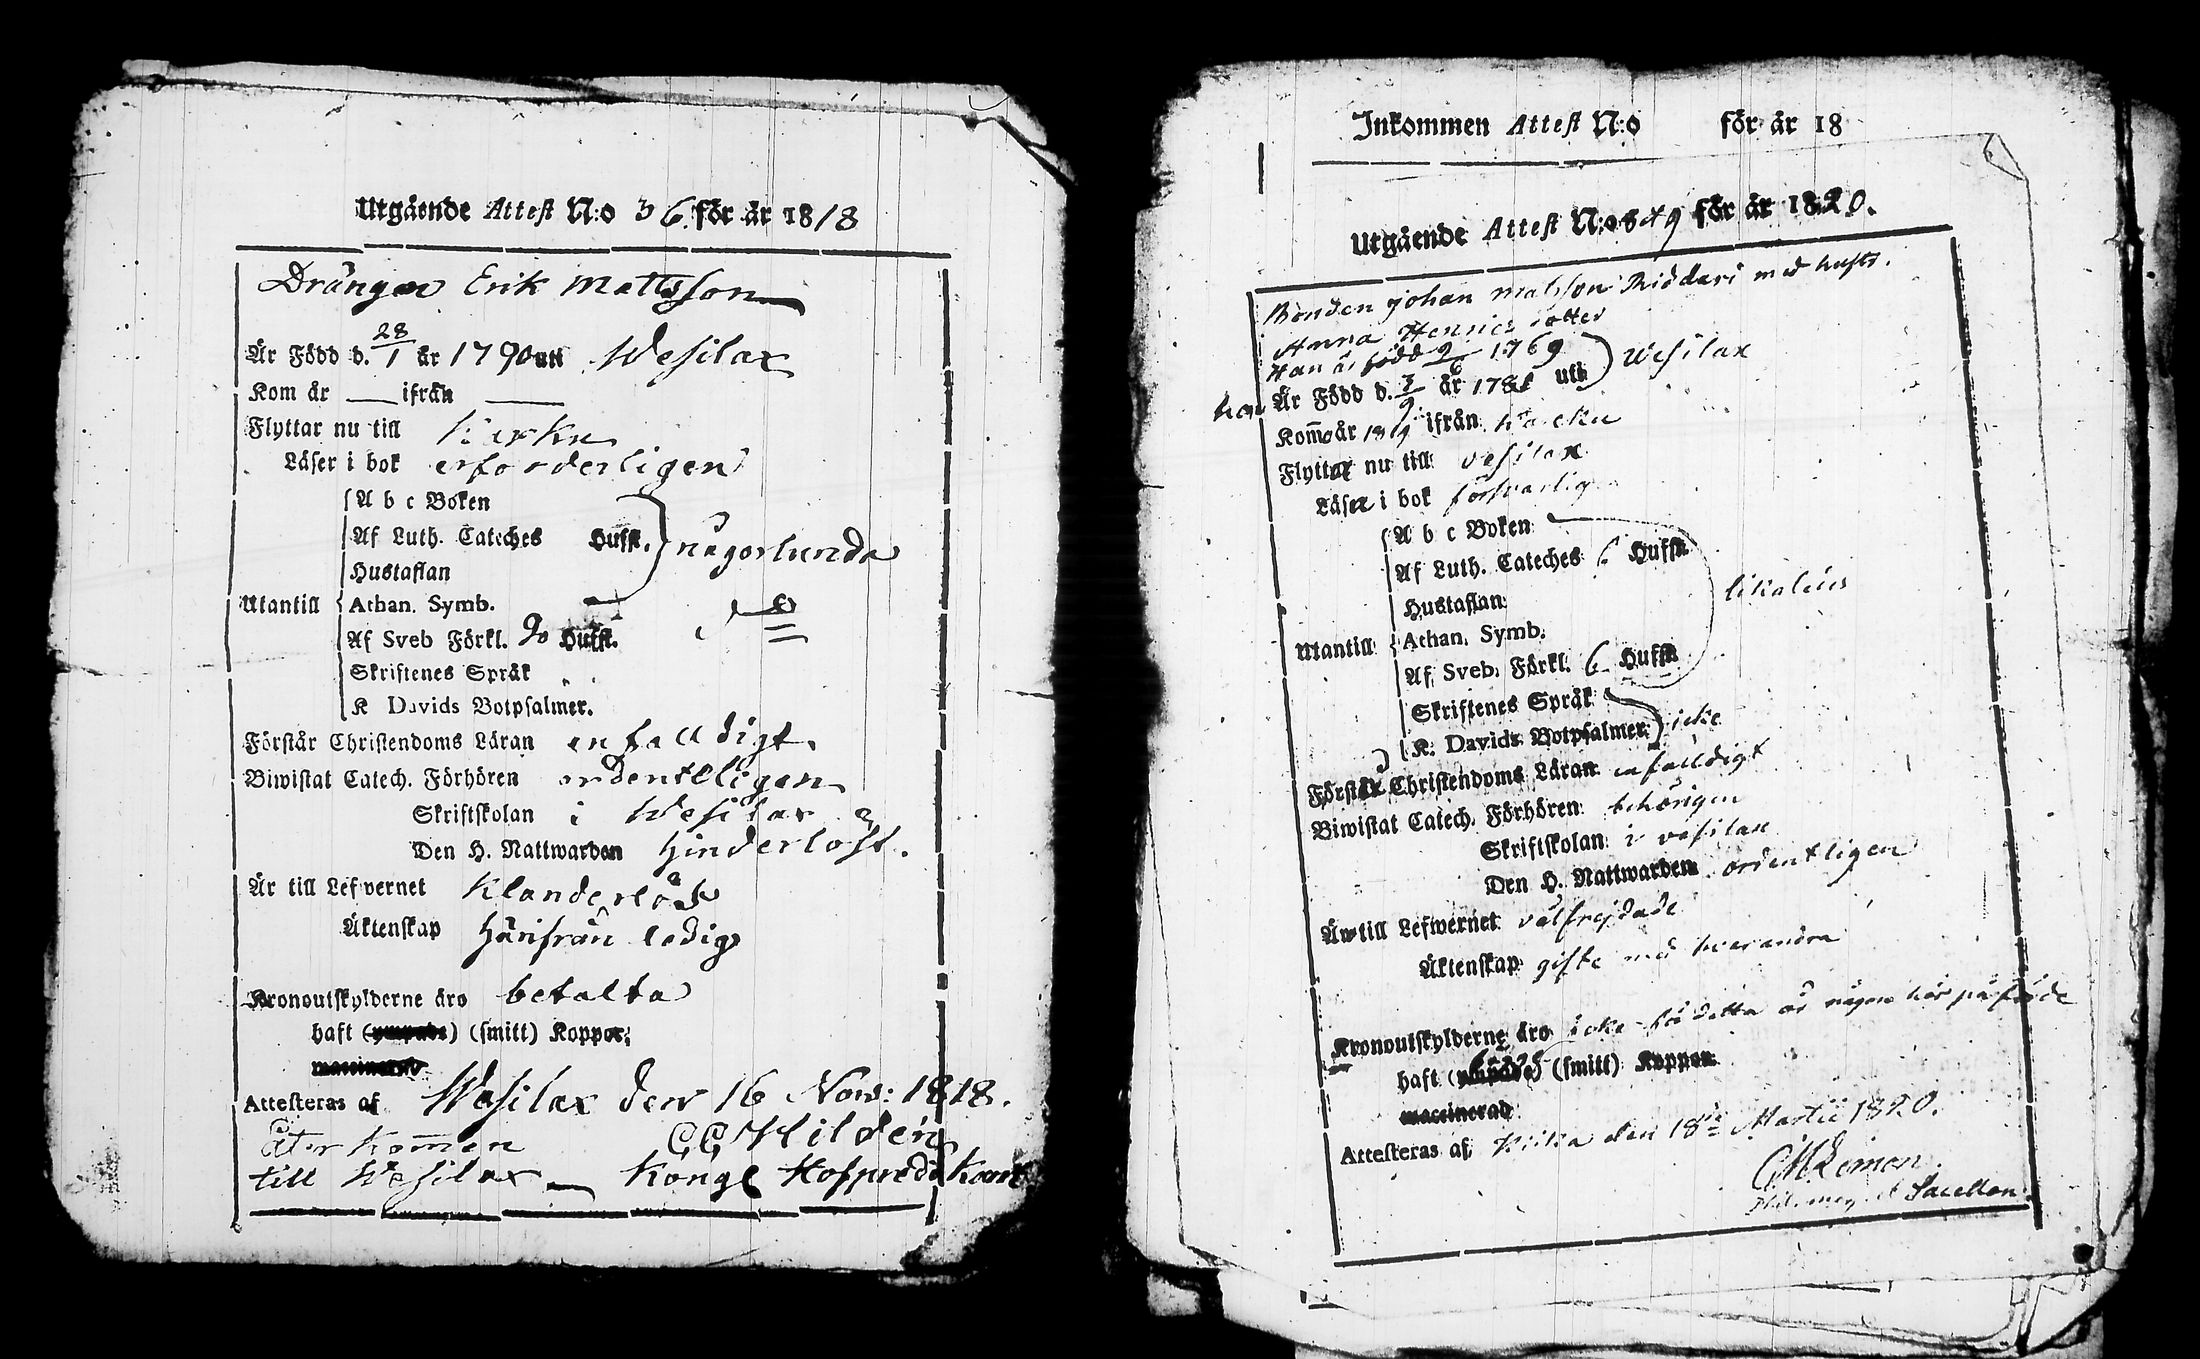 Utgående Attest N:o 36. för år 1818
Drängen Erik Mattsson
Är Född d. 28/1 år 1790 uti Wesilax
Kom år — ifrån —
Flyttar nu till Kirku
Läser i bok erforderligen
A b c Boken
Af Luth. Cateches Hufst.
Hustaflan
någorlunda
Utantill Athan. Symb.
Af Sveb Förkl. Hufst.
Skriftenes Språk
K Davids Botpsalmer.
Förstår Christendoms Läran enfalldigt.
Biwistat Catech. Förhören ordentligen
Skriftskolan i Wesilax
Den H. Nattwarden hinderlöst.
Är till Lefvernet Klanderlös
Äktenskap härifrån ledig
Kronoutskylderne äro betalta
haft (ympade) (smitt) Koppor;
waccinerad
Attesteras af Wesilax den 16 Nov: 1818.
Återkommen CG Hildén
till Wesilax — Kongl Hofpred
Inkommen Attest N:o för år 18
Utgående Attest N:o för år 1820.
Bonden Johan Matsson Riddari med hustr.
Anna Henricsdotter
Han är född 9/6 1769
hon Är Född d. 3/9 år uti Wesilax
Kom år 1819 ifrån
Flyttar nu till Vesilax
Läser i bok försvarligen
A b c Boken
Af Luth. Cateches 6 Hufst.
Hustaflan
likaledes
Utantill Athan. Symb.
Af Sveb. Förkl. 6 Hufst.
Skriftenes Språk
K. Davids Botpsalmer. icke
Förstår Christendoms Läran enfalldigt
Biwistat Catech. Förhören behörigen
Skriftskolan i vesilax
Den H. Nattwarden ordentligen
Äro till Lefwernet välfrejdade
Äktenskap gifte med hvarandra
Kronoutskylderne äro icke för detta år någre här påförde
haft (ympade) (smitt) Koppor
waccinerad
Attesteras af den 18de Martii 1820.
Sacellan.